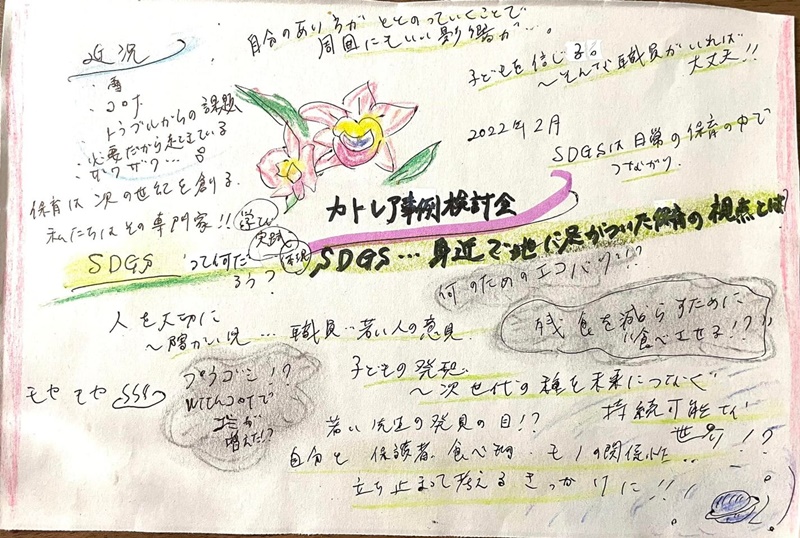 近況
・雪
・コロナ
トラブルからの課題
・必要だから起きている
・ザワザワ…
保育は次の世紀を創る
私たちはその専門家!!
学び
実践
表現
自分のあり方がととのっていくことで
周囲にもいい影響が…。
子どもを信じる。
〜そんな職員がいれば
大丈夫!!
2022年2月
SDGSは日常の保育の中で
つながり
カトレア事例検討会
SDGS…身近で地に足がついた保育の視点とは?
SDGSって何だ
ろう?
何のためのエコバッグ!?
残食を減らすために
"食べさせる!?"
人を大切に
〜障がい児…職員…若い人の意見
モヤモヤ
プラゴミ!?
withコロナで
ゴミが
増えた!?
子どもの発想
〜次世代の種を未来につなぐ
持続可能な
世界!?
若い先生の発見の目!?
自分と保護者、食べ物・モノの関係性…
立ち止まって考えるきっかけに!!